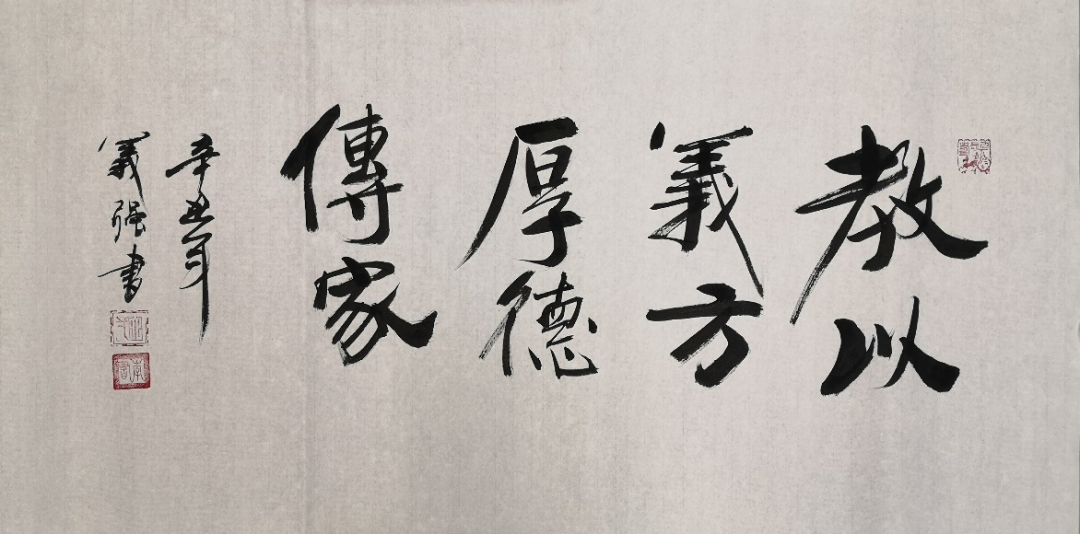 教以
義方
厚德
傳家
辛丑年
義強書